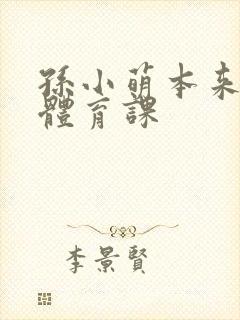 孫小萌本来
體育課
李景賢